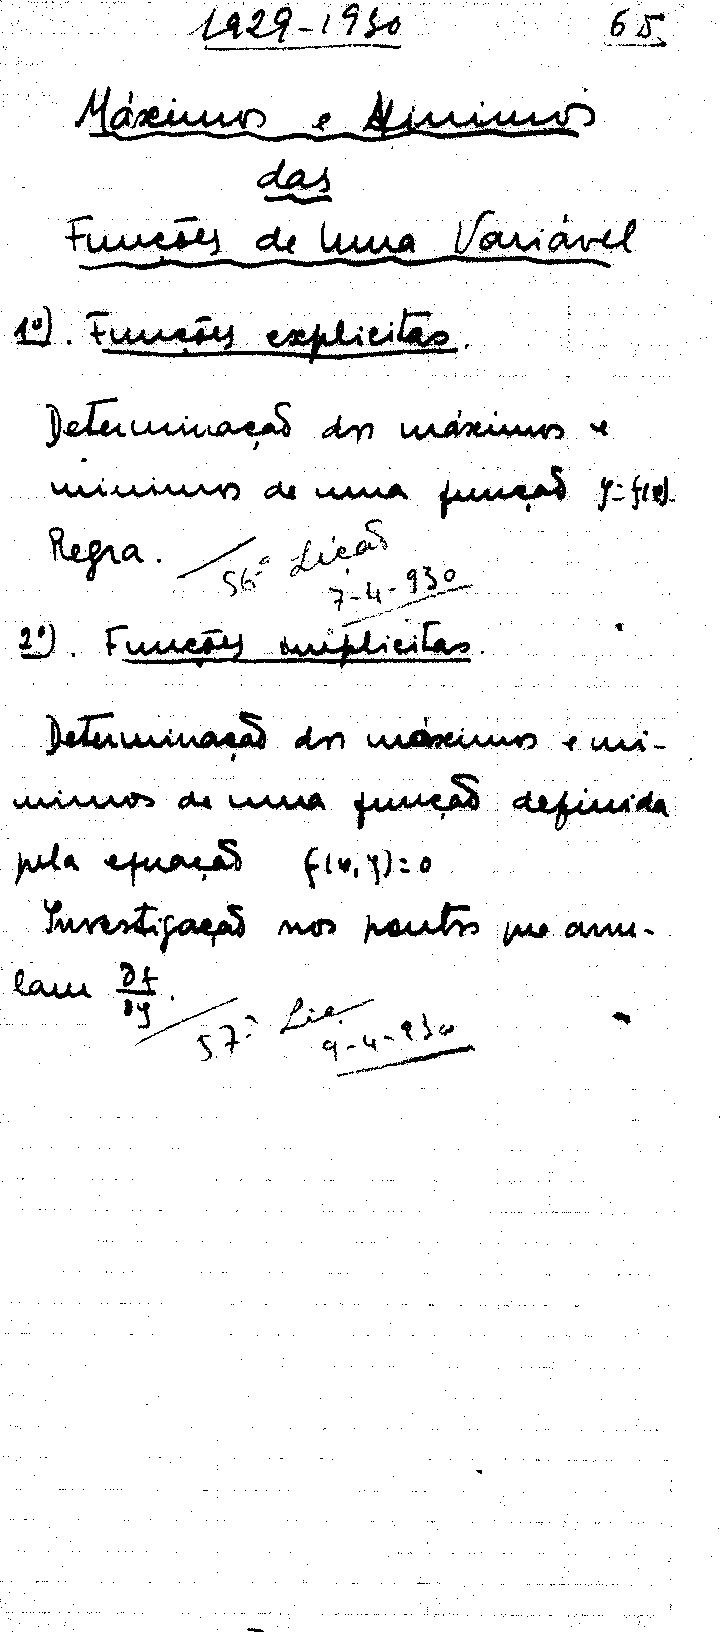 1929-1930 65
Máximos e Minimos
das
Funções de Uma Variável
1º). Funções explicitas.
Determinação dos máximos e
minimos de uma função y=f(x).
Regra.
56.ª Lição
7-4-930
2º). Funções implicitas.
Determinação dos máximos e mi-
nimos de uma função definida
pela equação f(x,y)=0
Investigação nos pontos que anu-
lam ∂f/∂y.
57.ª Liç.
9-4-930